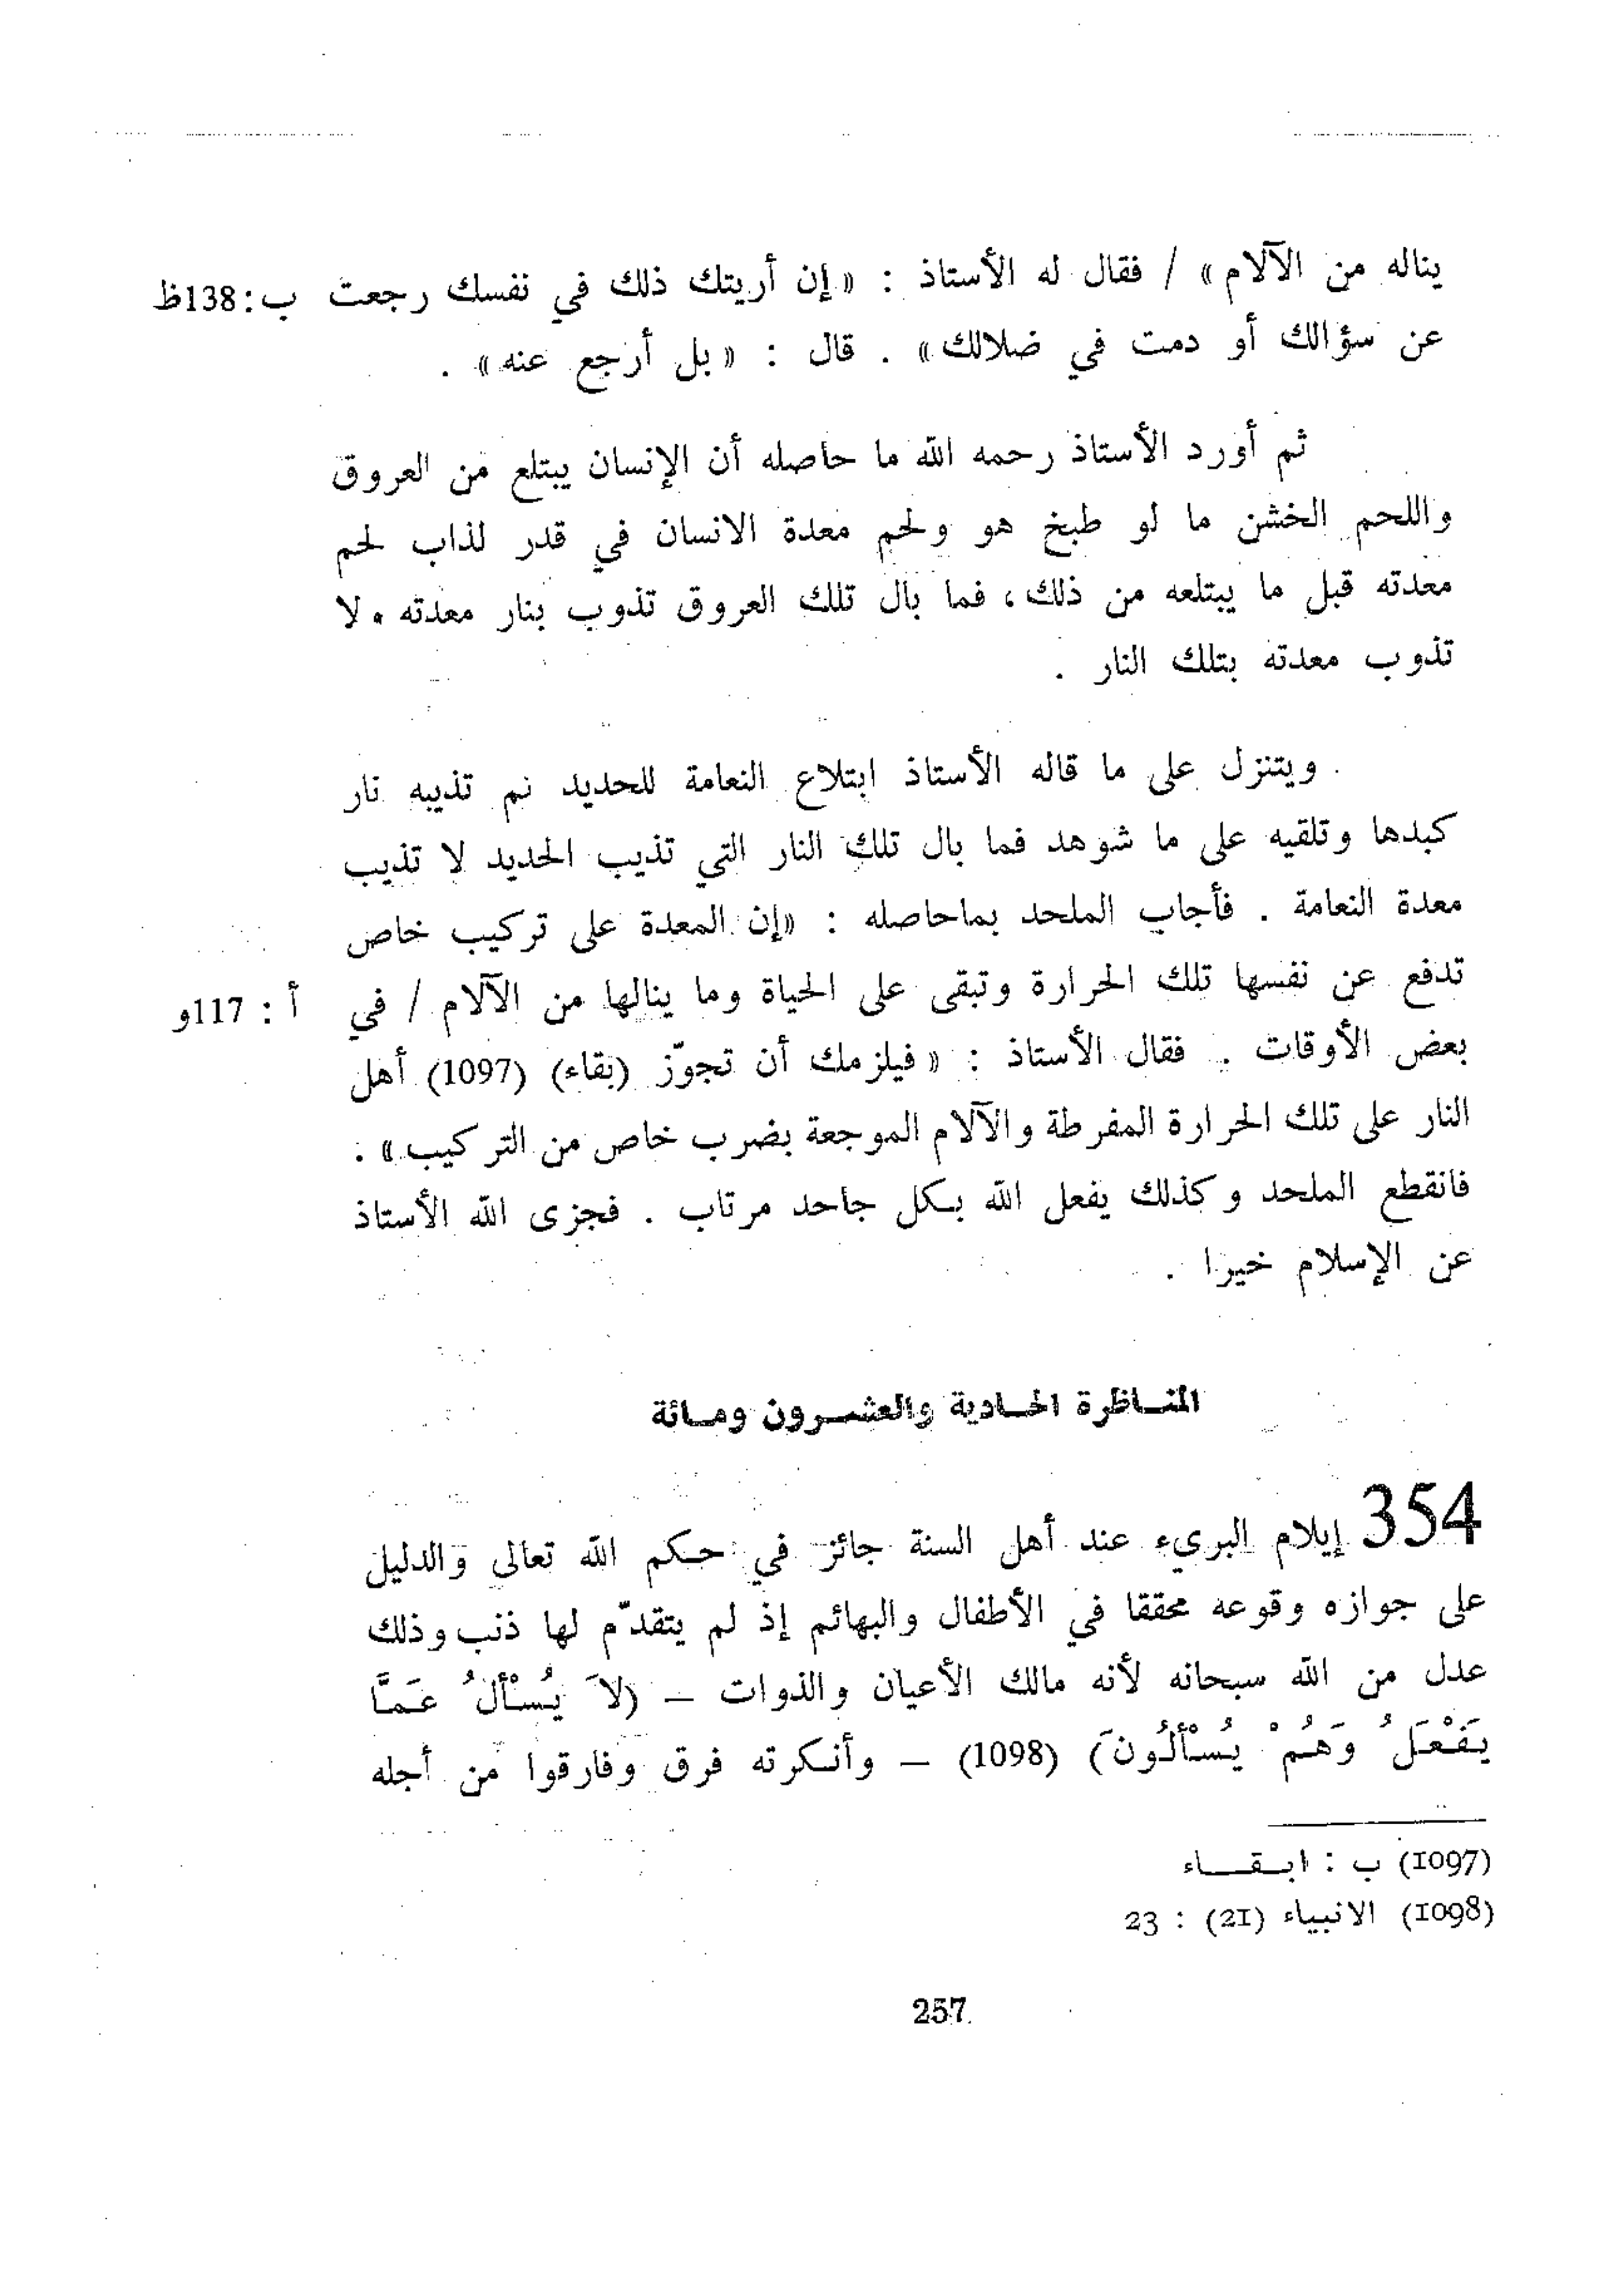 يناله من الآلام» / فقال له الأستاذ : «إن أريتك ذلك في نفسك رجعت ب:138ظ
عن سؤالك أو دمت في ضلالك» . قال : «بل أرجع عنه» .
ثم أورد الأستاذ رحمه الله ما حاصله أن الإنسان يبتلع من العروق
واللحم الخشن ما لو طبخ هو ولحم معدة الانسان في قدر لذاب لحم
معدته قبل ما يبتلعه من ذلك، فما بال تلك العروق تذوب بنار معدته ولا
تذوب معدته بتلك النار .
ويتنزل على ما قاله الأستاذ ابتلاع النعامة للحديد ثم تذيبه نار
كبدها وتلقيه على ما شوهد فما بال تلك النار التي تذيب الحديد لا تذيب
معدة النعامة . فأجاب الملحد بماحاصله : «إن المعدة على تركيب خاص
تدفع عن نفسها تلك الحرارة وتبقى على الحياة وما ينالها من الآلام / في أ : 117و
بعض الأوقات . فقال الأستاذ : «فيلزمك أن تجوّز (بقاء) (1097) أهل
النار على تلك الحرارة المفرطة والآلام الموجعة بضرب خاص من التركيب» :
فانقطع الملحد وكذلك يفعل الله بكل جاحد مرتاب . فجزى الله الأستاذ
عن الإسلام خيرا .
المناظرة الحادية والعشرون ومائة
354 إيلام البريء عند أهل السنة جائز في حكم الله تعالى والدليل
على جوازه وقوعه محققا في الأطفال والبهائم إذ لم يتقدّم لها ذنب وذلك
عدل من الله سبحانه لأنه مالك الأعيان والذوات – (لاَ يُسْأَلُ عَمَّا
يَفْعَلُ وَهُمْ يُسْأَلُونَ) (1098) – وأنكرته فرق وفارقوا من أجله
(1097) ب : ابقاء
(1098) الانبياء (21) : 23
257